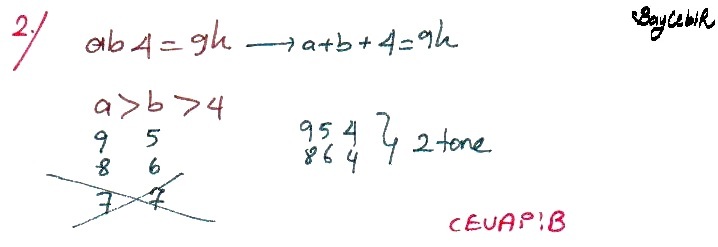 BayCebir
2.) ab4 = 9k → a+b+4=9k
a > b > 4
9 5
8 6
7 7
954
864 } 2 tane
CEVAP:B